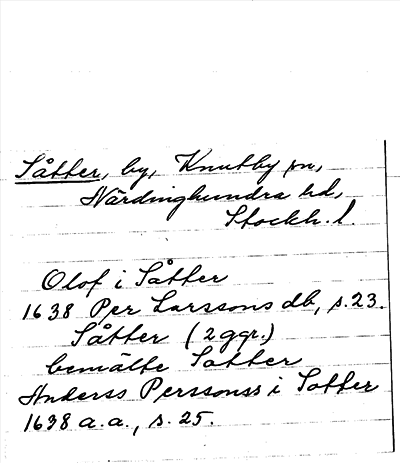 Såtter, by, Knutby sn,
Närdinghundra hd,
Stockh. l.
Olof i Såtter
1638 Per Larssons db, s. 23.
Såtter (2 ggr.)
bemälte Satter
Anderss Perssonss i Sotter
1638 a.a., s. 25.